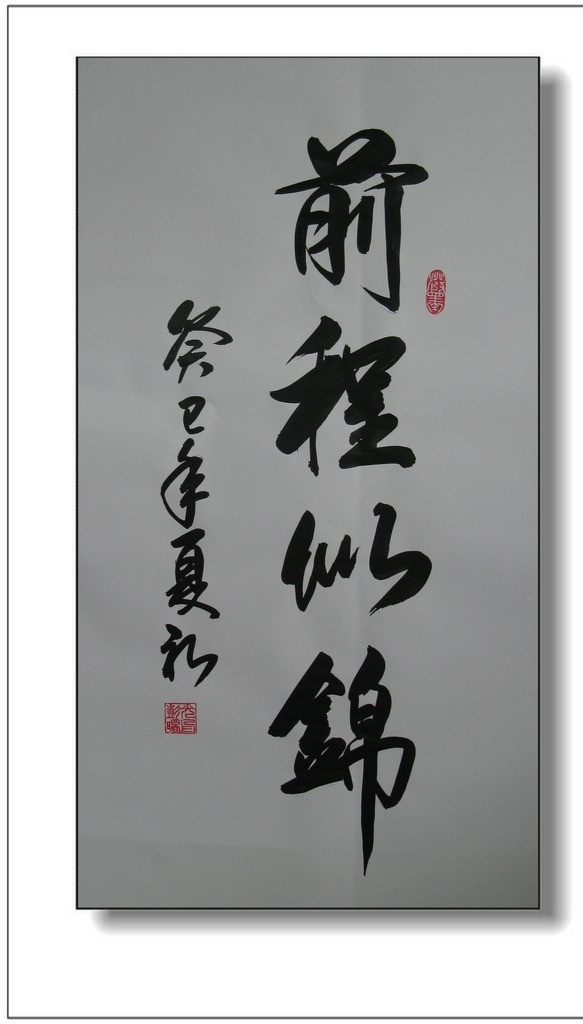 前程似錦
癸巳年夏初